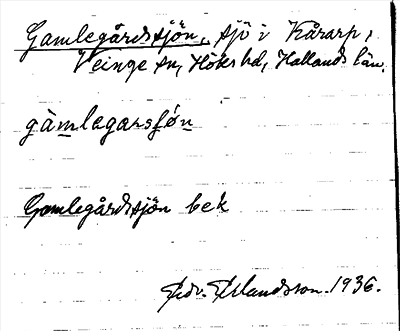 Gamlegårdssjön, sjö i Kårarp,
Veinge sn, Höks hd, Hallands län.
gàmlagarsʃǿn
Gamlegårdssjön bek
Edv. Erlandsson. 1936.